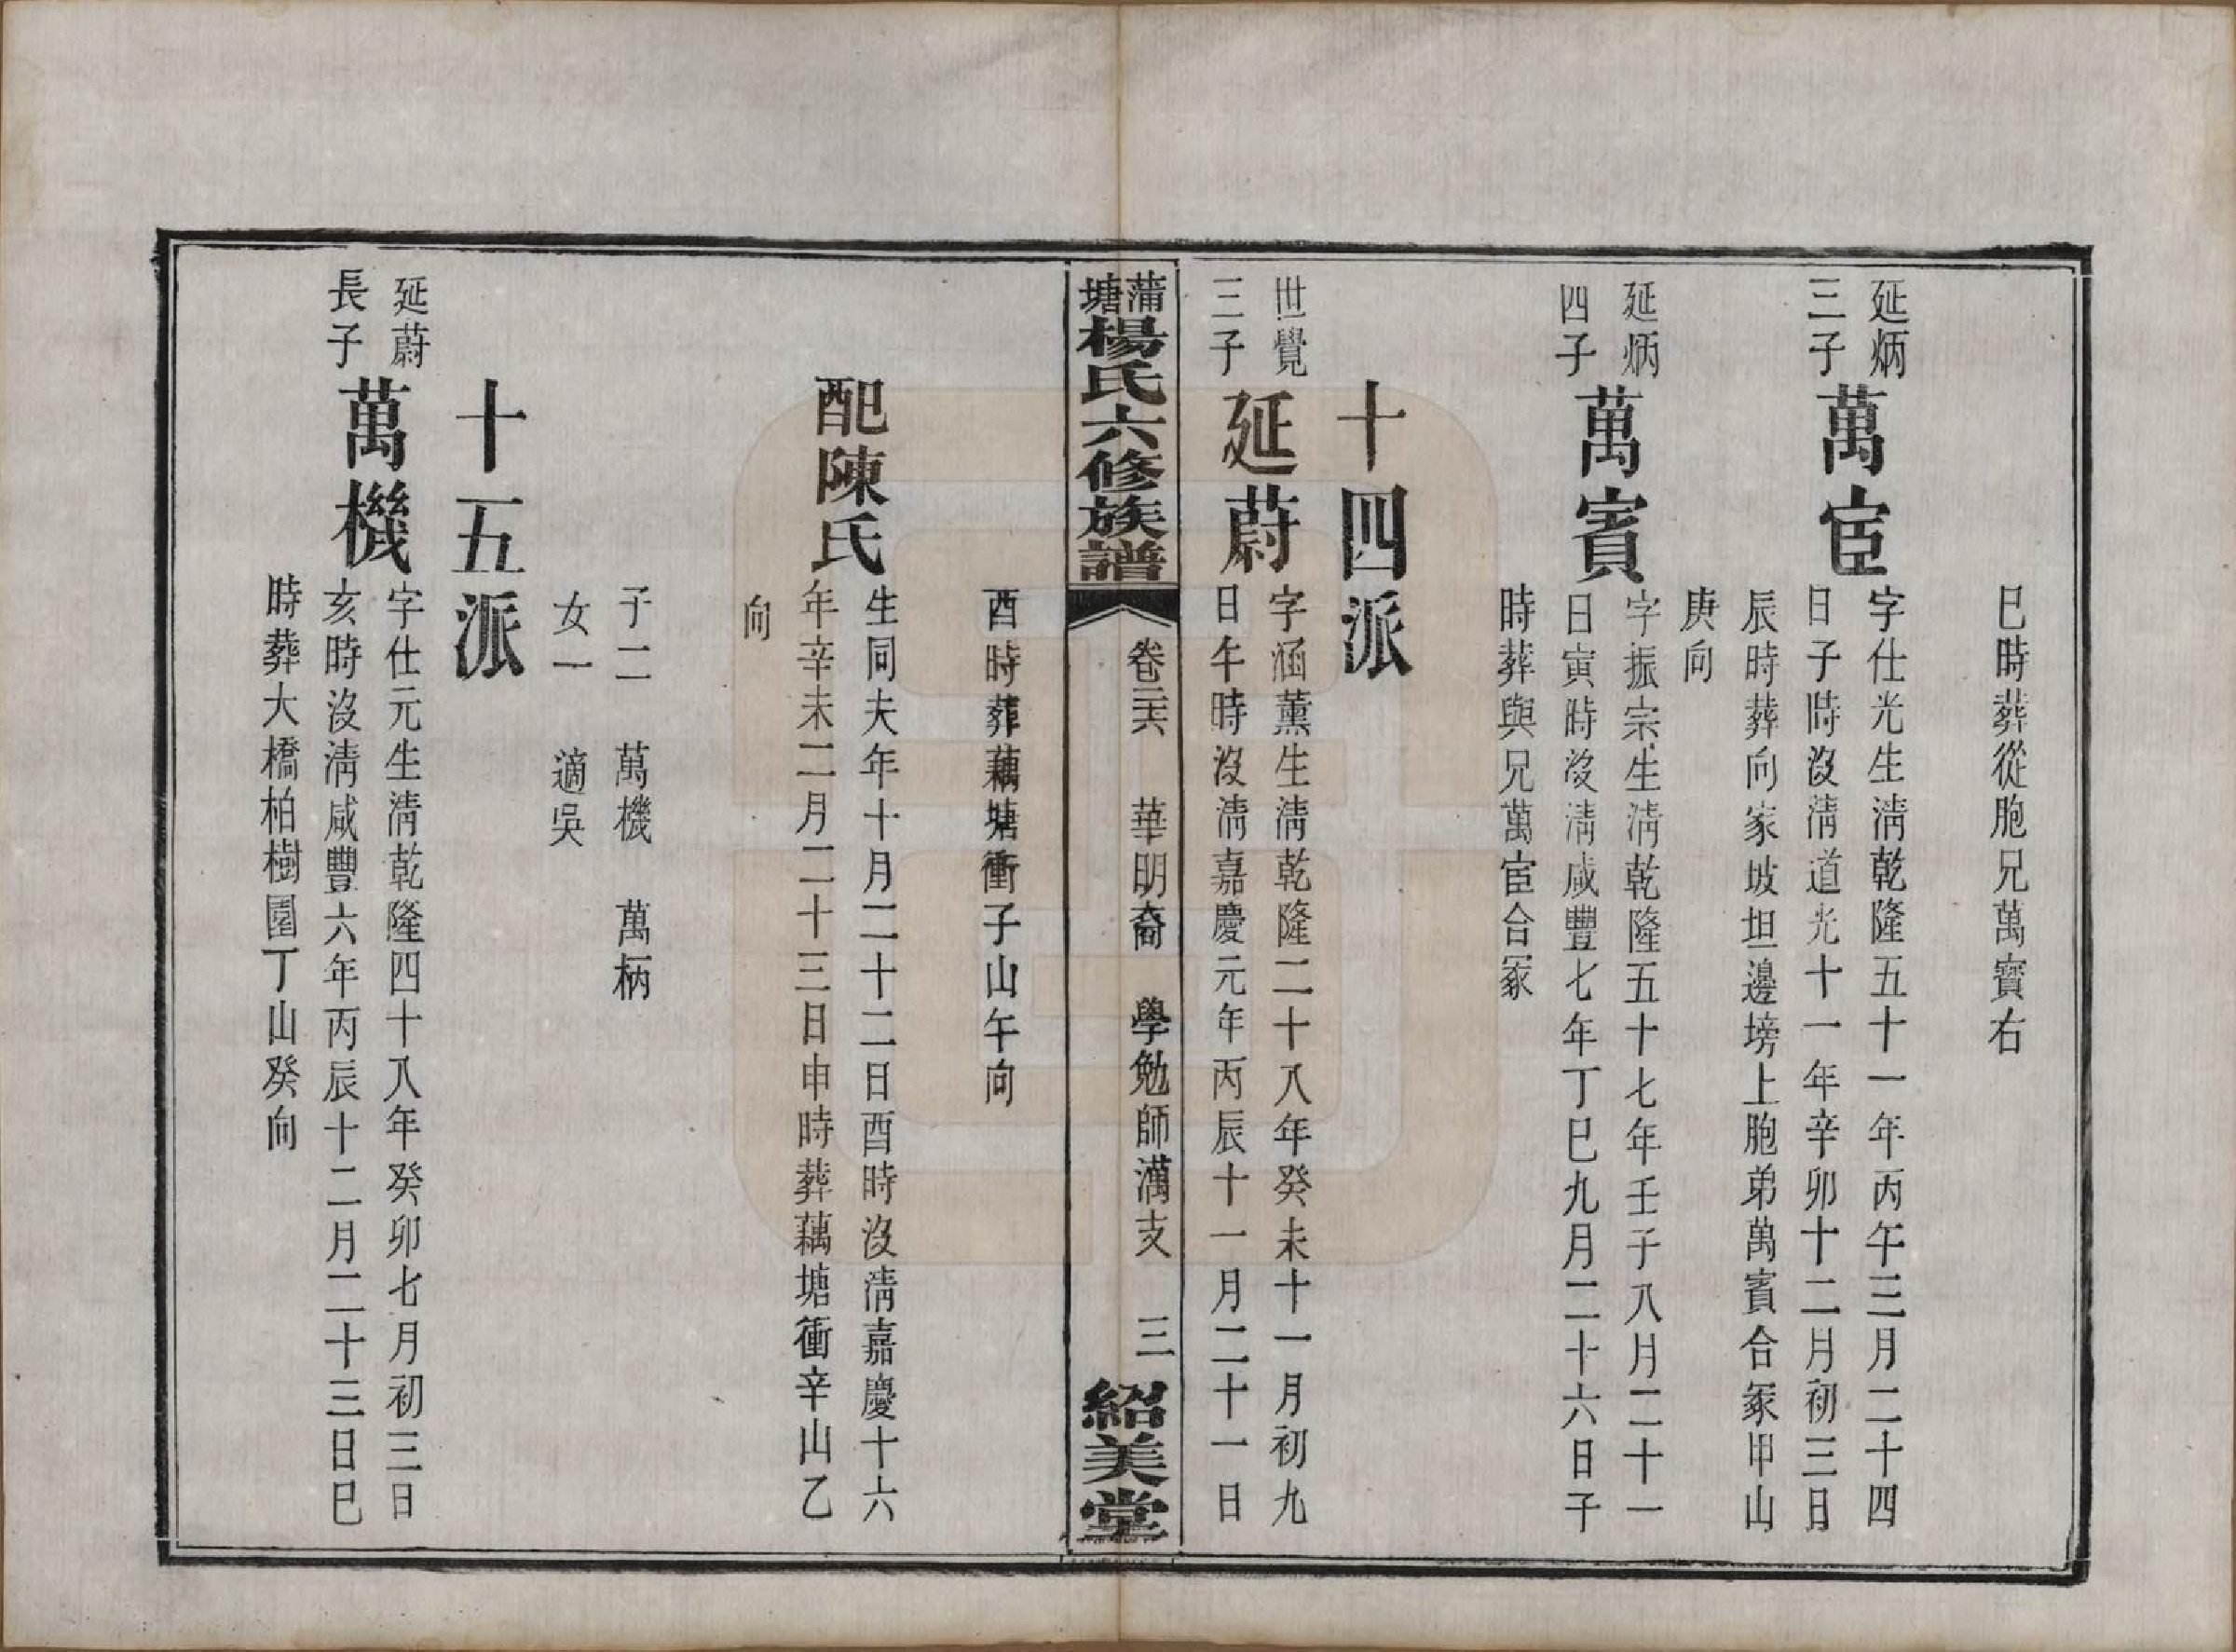 巳時葬從胞兄萬寳右
延炳
三子
萬宦
字仕光生淸乾隆五十一年丙午三月二十四
日子時沒淸道光十一年辛卯十二月初三日
辰時葬向家坡坦邊塝上胞弟萬賓合冢甲山
庚向
延炳
四子
萬賓
字振宗生淸乾隆五十七年壬子八月二十一
日寅時沒淸咸豐七年丁巳九月二十六日子
時葬與兄萬宦合冢
十四派
世覺
三子
延蔚
字涵薰生淸乾隆二十八年癸未十一月初九
日午時沒淸嘉慶元年丙辰十一月二十一日
蒲塘楊氏六修族譜
卷三六 華明裔 學勉師澫支 三
紹美堂
酉時葬藕塘衝子山午向
配陳氏
生同夫年十月二十二日酉時沒淸嘉慶十六
年辛未二月二十三日申時葬藕塘衝辛山乙
向
子二 萬機 萬柄
女一 適吳
十五派
延蔚
長子
萬機
字仕元生淸乾隆四十八年癸卯七月初三日
亥時沒淸咸豐六年丙辰十二月二十三日巳
時葬大橋柏樹園丁山癸向